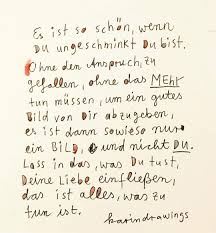 Es ist so schön, wenn
DU ungeschminkt DU bist.
Ohne den Anspruch, zu
gefallen, ohne das MEHr
tun müssen, um ein gutes
Bild von Dir abzugeben,
es ist dann sowieso nur
ein BILD und nicht DU.
Lass in das, was Du tust,
Deine Liebe einfließen,
das ist alles, was zu
tun ist.
karindrawings